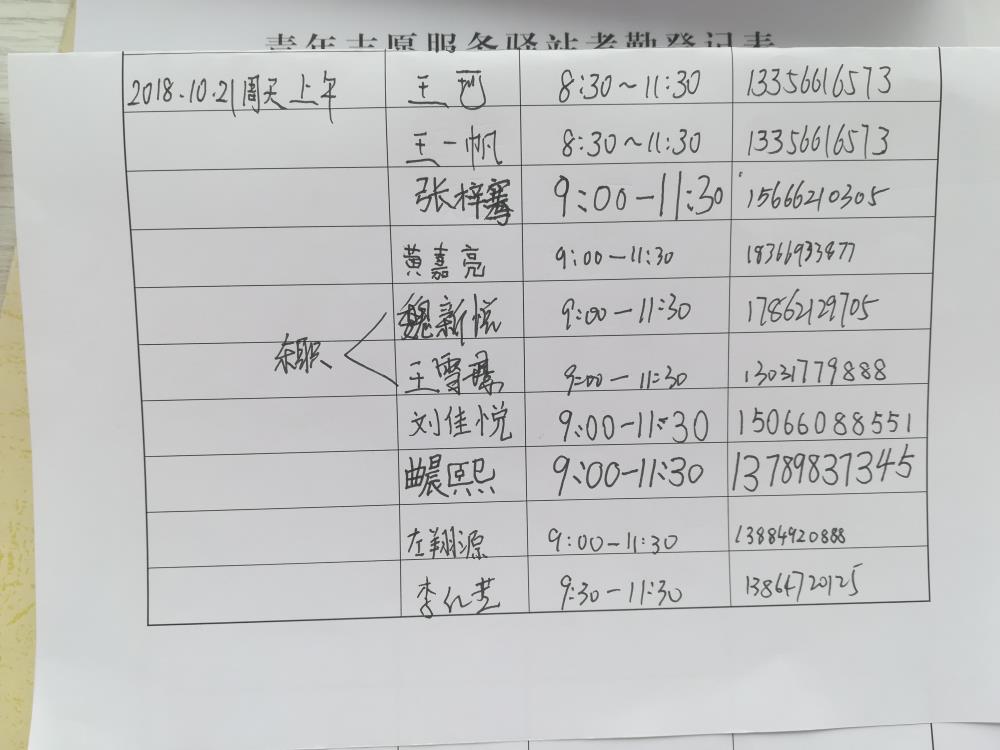 青年志愿服务驿站考勤登记表
2018.10.21周天上午 王 8:30~11:30 13356616573
王一帆 8:30~11:30 13356616573
张梓骞 9:00-11:30 15666210305
黄嘉亮 9:00-11:30 18366933877
魏新悦 9:00-11:30 17862129705
王雪 9:00-11:30 13031779888
刘佳悦 9:00-11:30 15066088551
曲晨熙 9:00-11:30 13789837345
左翔源 9:00-11:30 13884920888
李 9:30-11:30 13864720125